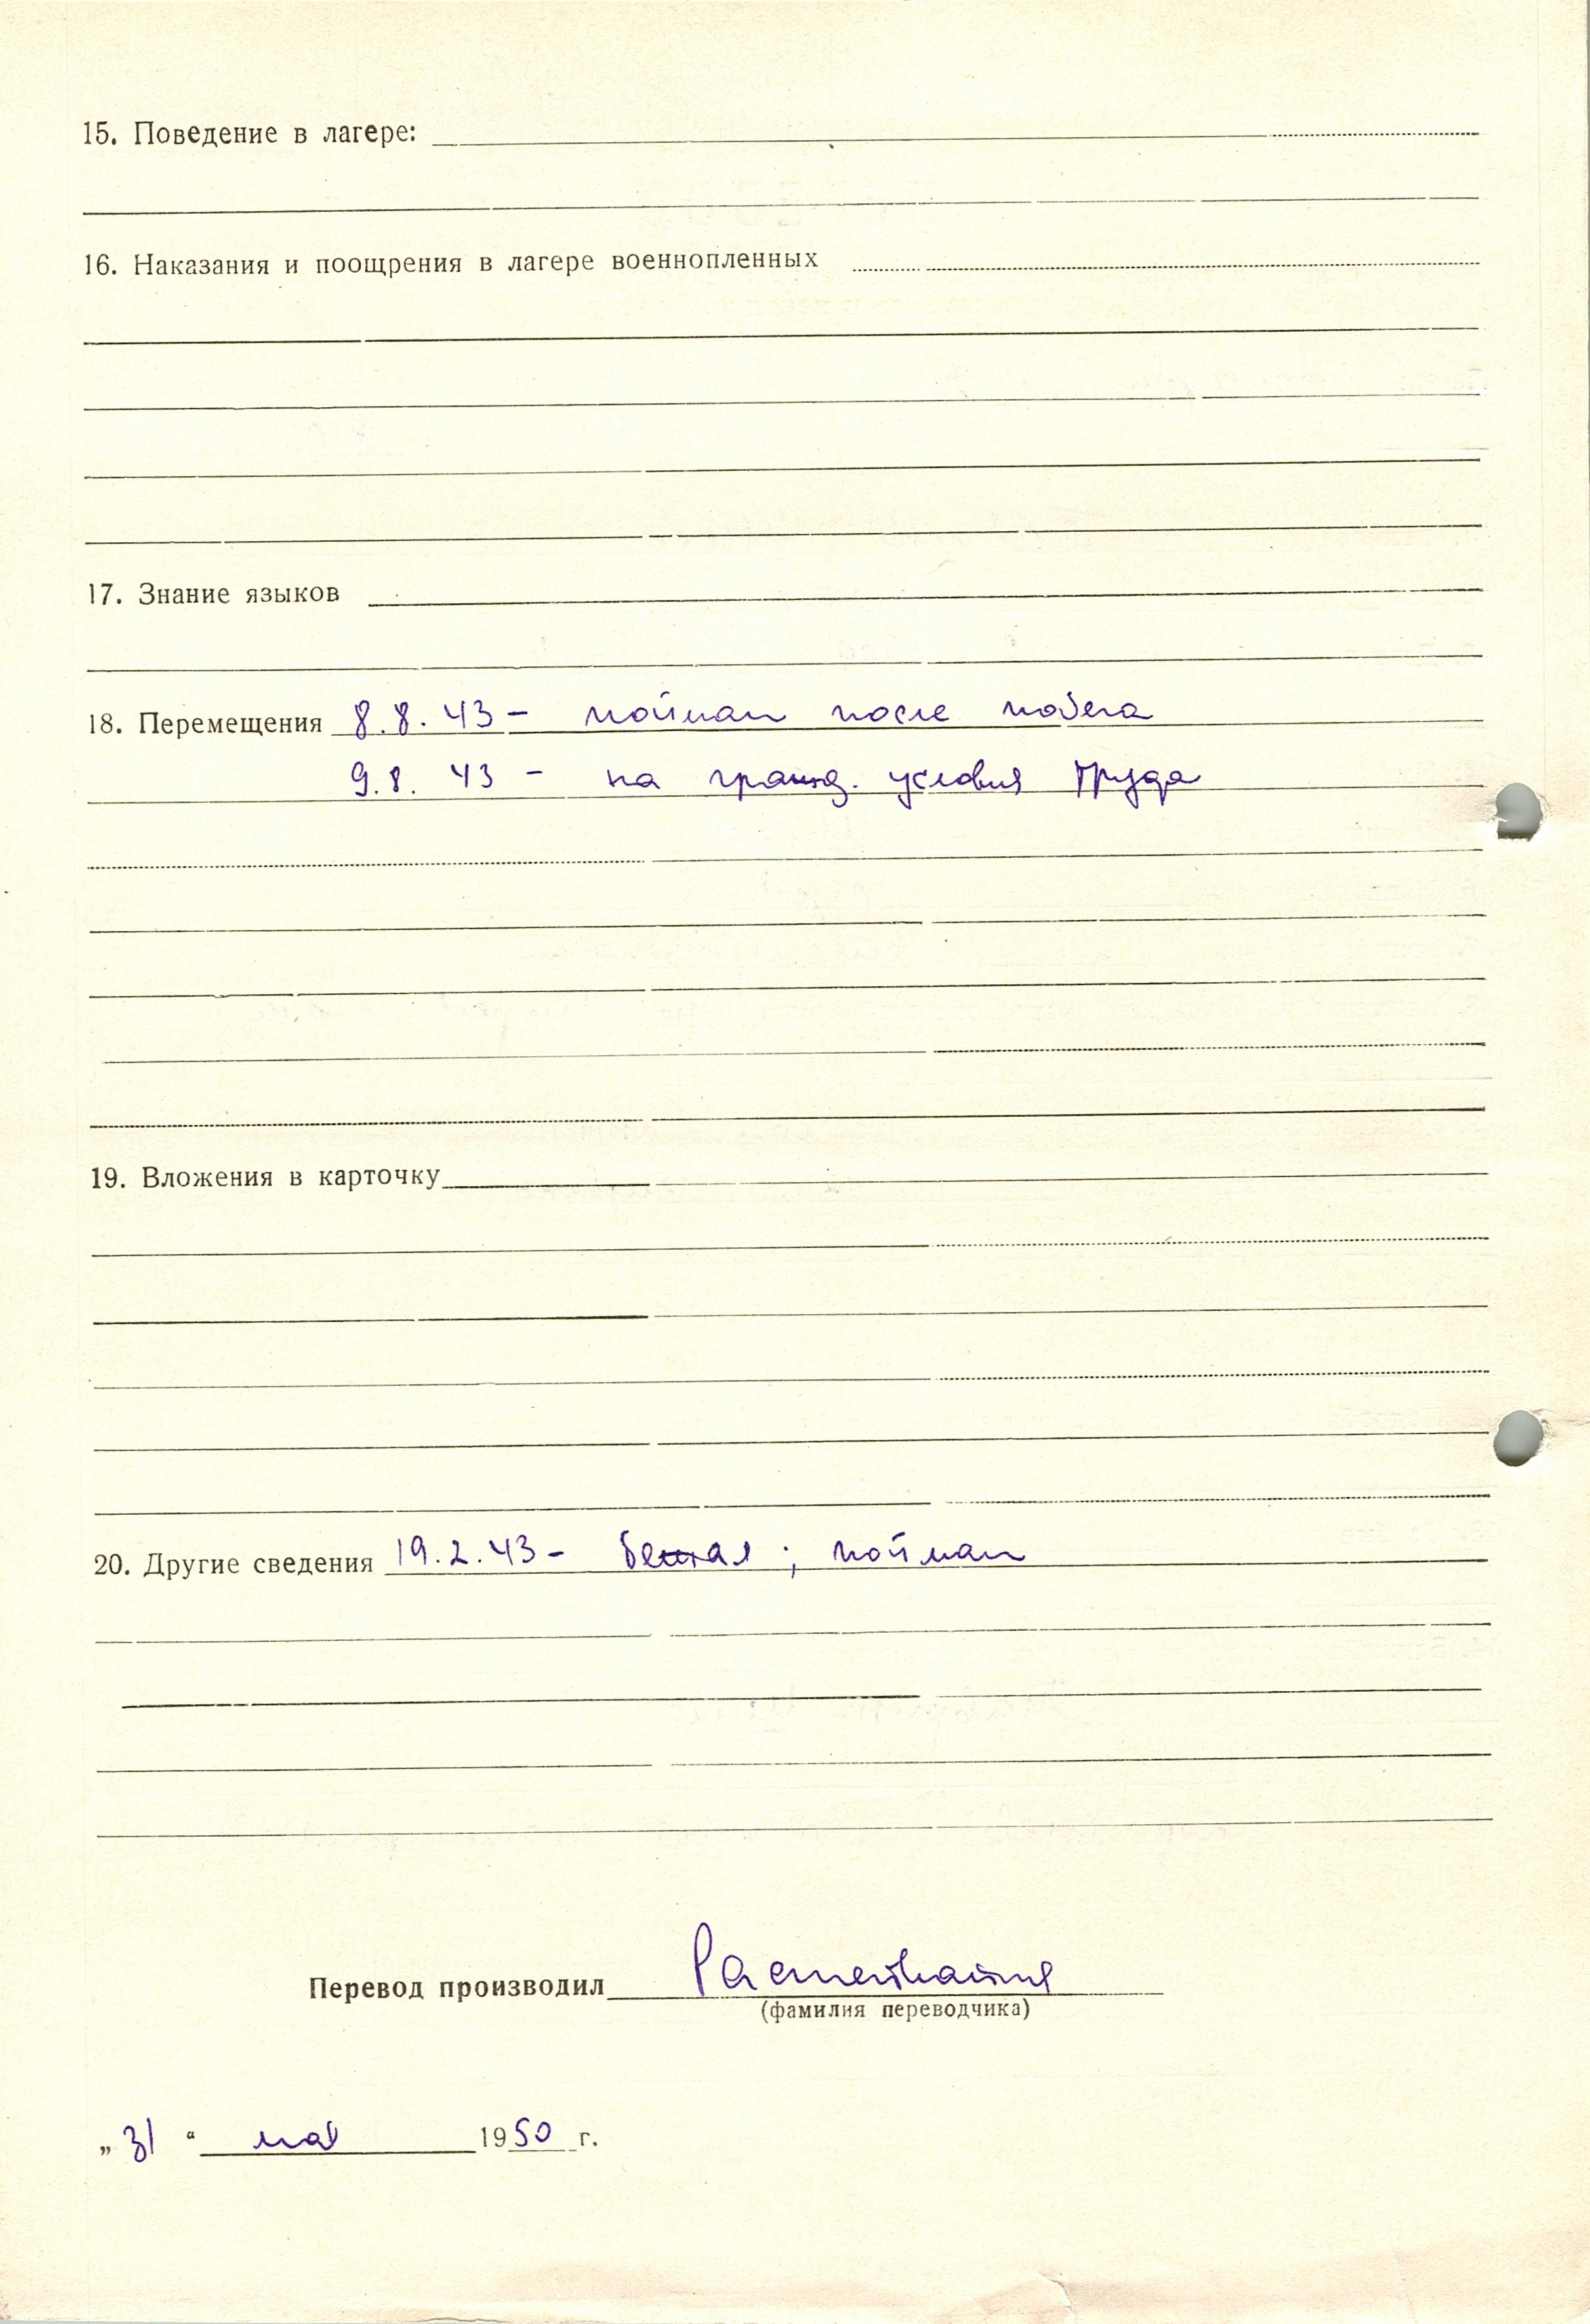 15. Поведение в лагере:
16. Наказания и поощрения в лагере военнопленных
17. Знание языков
18. Перемещения 8.8.43 – пойман после побега
9.8.43 – на гражд. условия труда
19. Вложения в карточку
20. Другие сведения 19.2.43 – бежал; пойман
Перевод производил
(фамилия переводчика)
„31“ мая 1950 г.